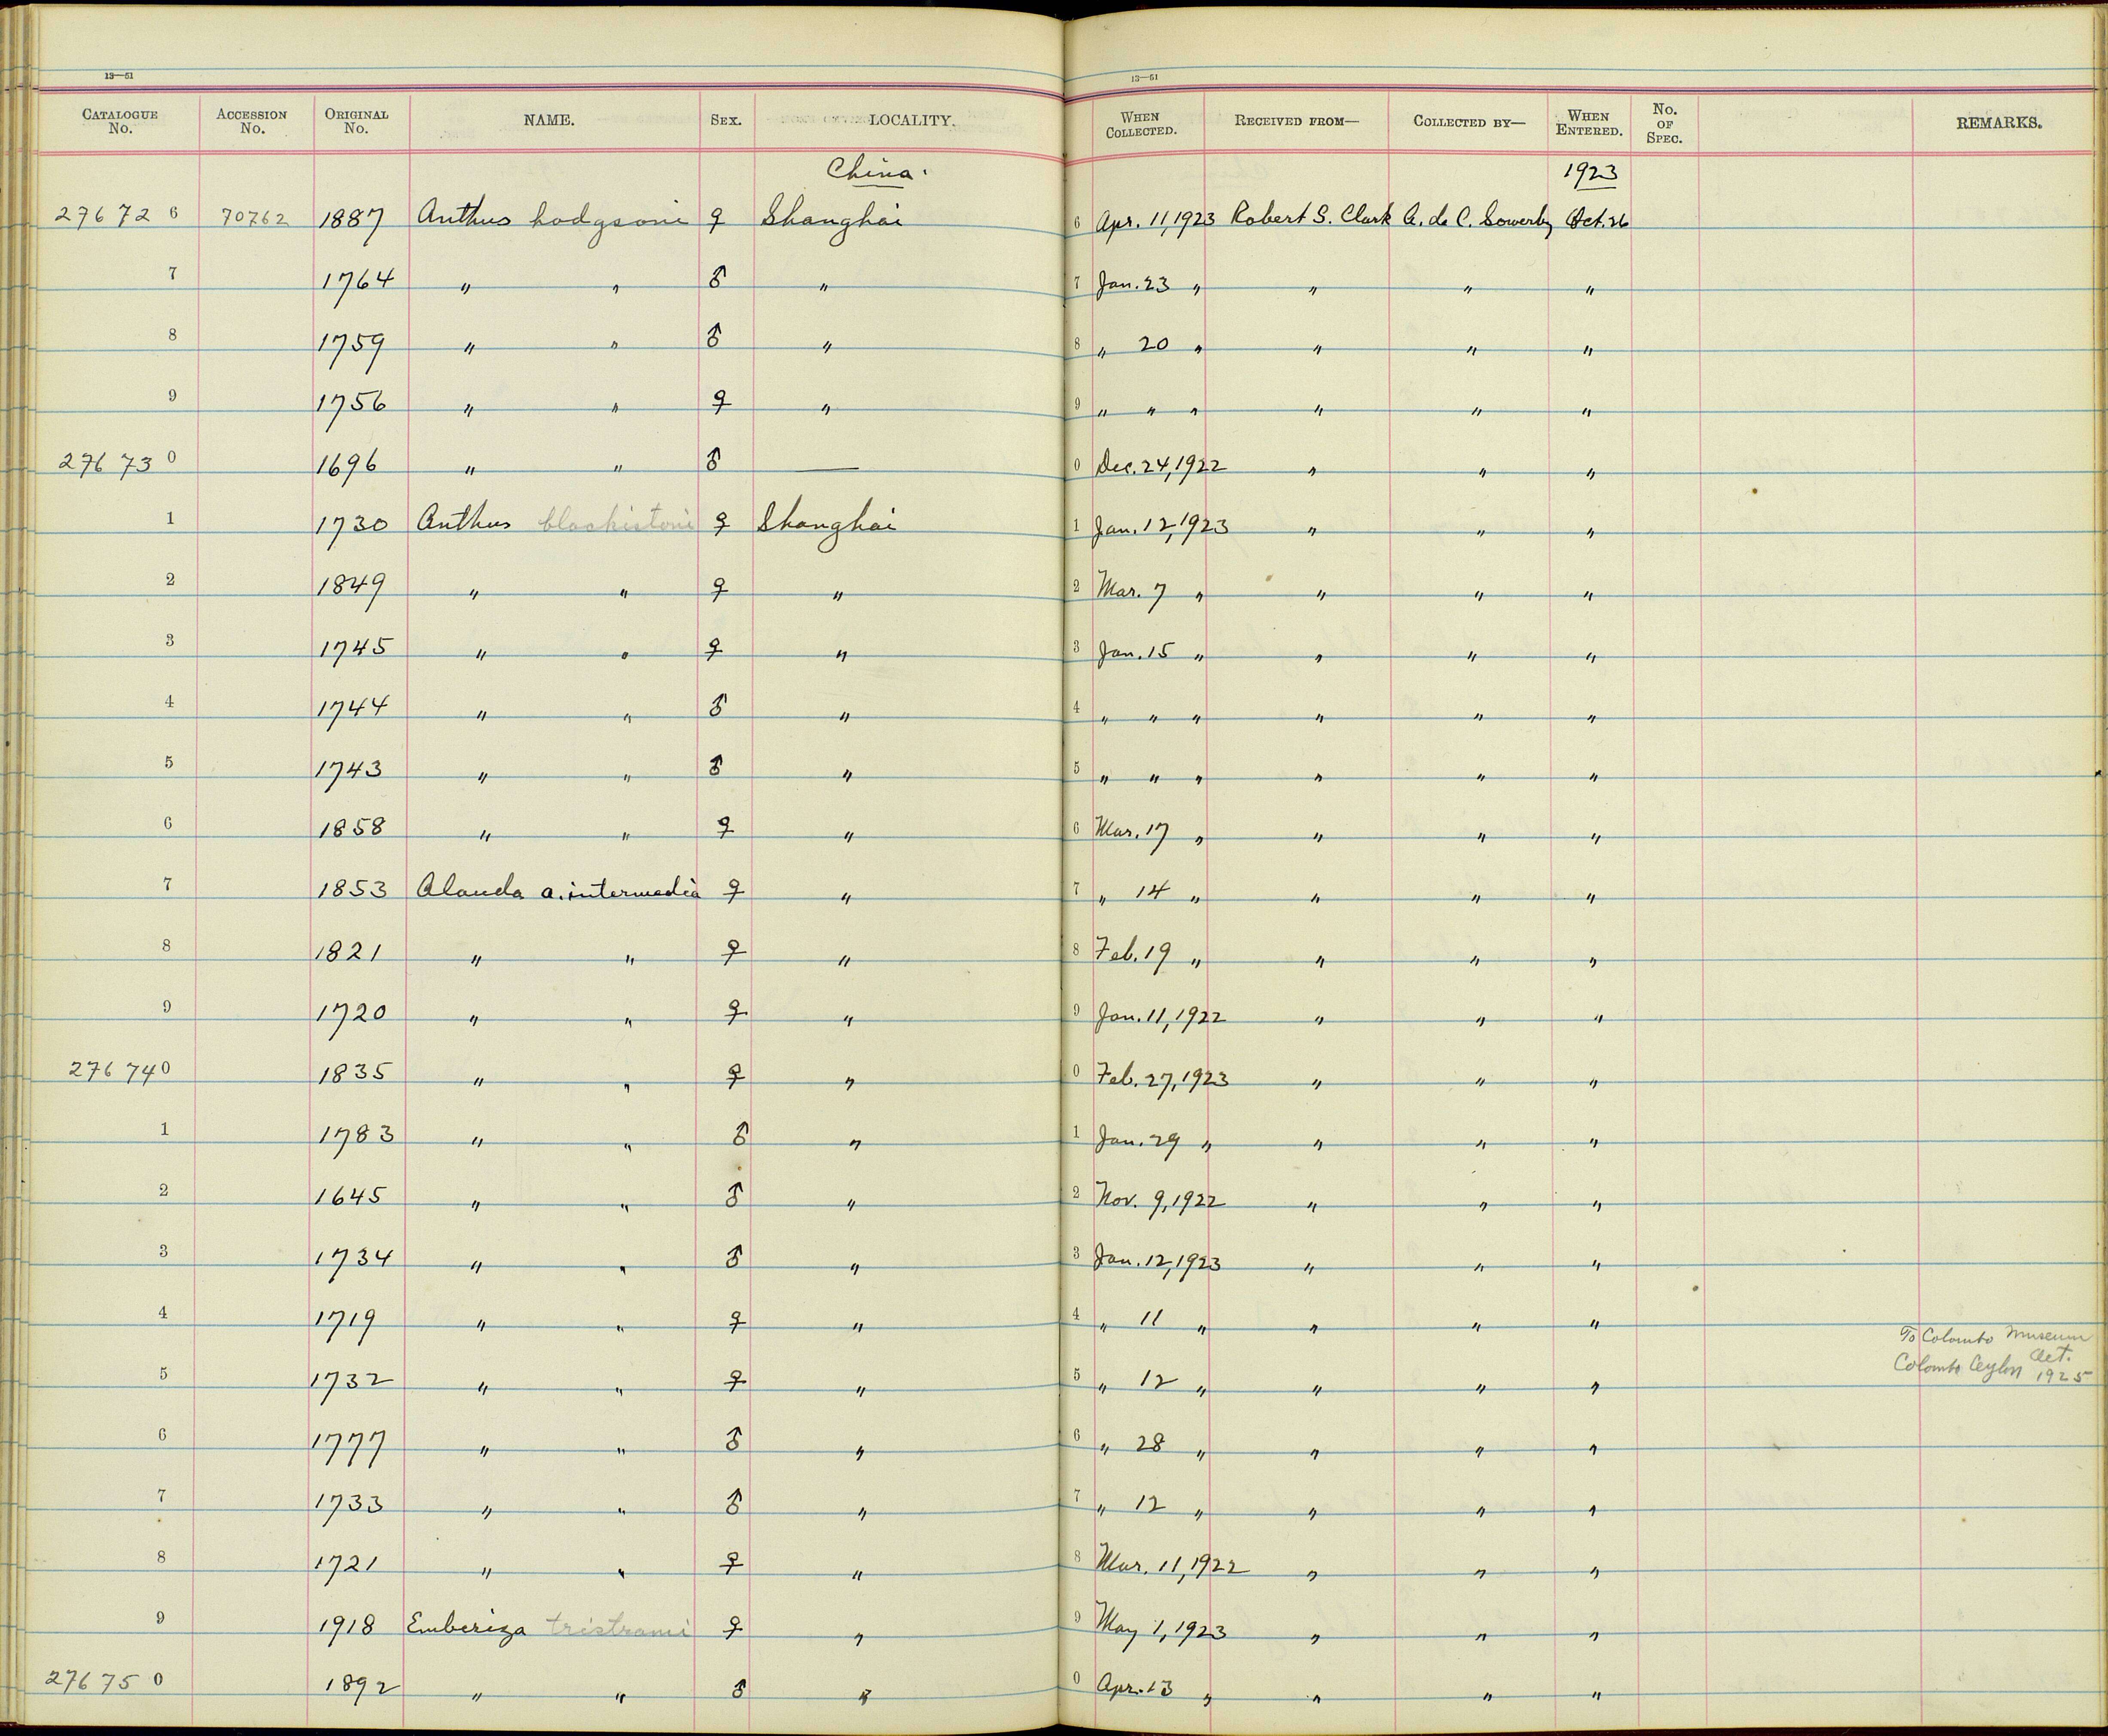 13—51
13—51
CATALOGUE No. ACCESSION No. ORIGINAL No. NAME. SEX. LOCALITY. WHEN COLLECTED. RECEIVED FROM— COLLECTED BY— WHEN ENTERED. No. OF SPEC. REMARKS.
China. 1923
276726 70762 1887 Anthus hodgsoni ♀ Shanghai 6 Apr. 11, 1923 Robert S. Clark A. de C. Sowerby Oct. 26
7 1764 " " ♂ " 7 Jan. 23 " " " "
8 1759 " " ♂ " 8 " 20 " " " "
9 1756 " " ♀ " 9 " " " " " "
276730 1696 " " ♂ — 0 Dec. 24, 1922 " " "
1 1730 Anthus blackistoni ♀ Shanghai 1 Jan. 12, 1923 " " "
2 1849 " " ♀ " 2 Mar. 7 " " " "
3 1745 " " ♀ " 3 Jan. 15 " " " "
4 1744 " " ♂ " 4 " " " " " "
5 1743 " " ♂ " 5 " " " " " "
6 1858 " " ♀ " 6 Mar. 17 " " " "
7 1853 Alauda a. intermedia ♀ " 7 " 14 " " " "
8 1821 " " ♀ " 8 Feb. 19 " " " "
9 1720 " " ♀ " 9 Jan. 11, 1922 " " "
276740 1835 " " ♀ " 0 Feb. 27, 1923 " " "
1 1783 " " ♂ " 1 Jan. 29 " " " "
2 1645 " " ♂ " 2 Nov. 9, 1922 " " "
3 1734 " " ♂ " 3 Jan. 12, 1923 " " "
4 1719 " " ♀ " 4 " 11 " " " "
To Colombo Museum
Colombo Ceylon Oct. 1925
5 1732 " " ♀ " 5 " 12 " " " "
6 1777 " " ♂ " 6 " 28 " " " "
7 1733 " " ♂ " 7 " 12 " " " "
8 1721 " " ♀ " 8 Mar. 11, 1922 " " "
9 1918 Emberiza tristrami ♀ " 9 May 1, 1923 " " "
276750 1892 " " ♂ " 0 Apr. 13 " " " "